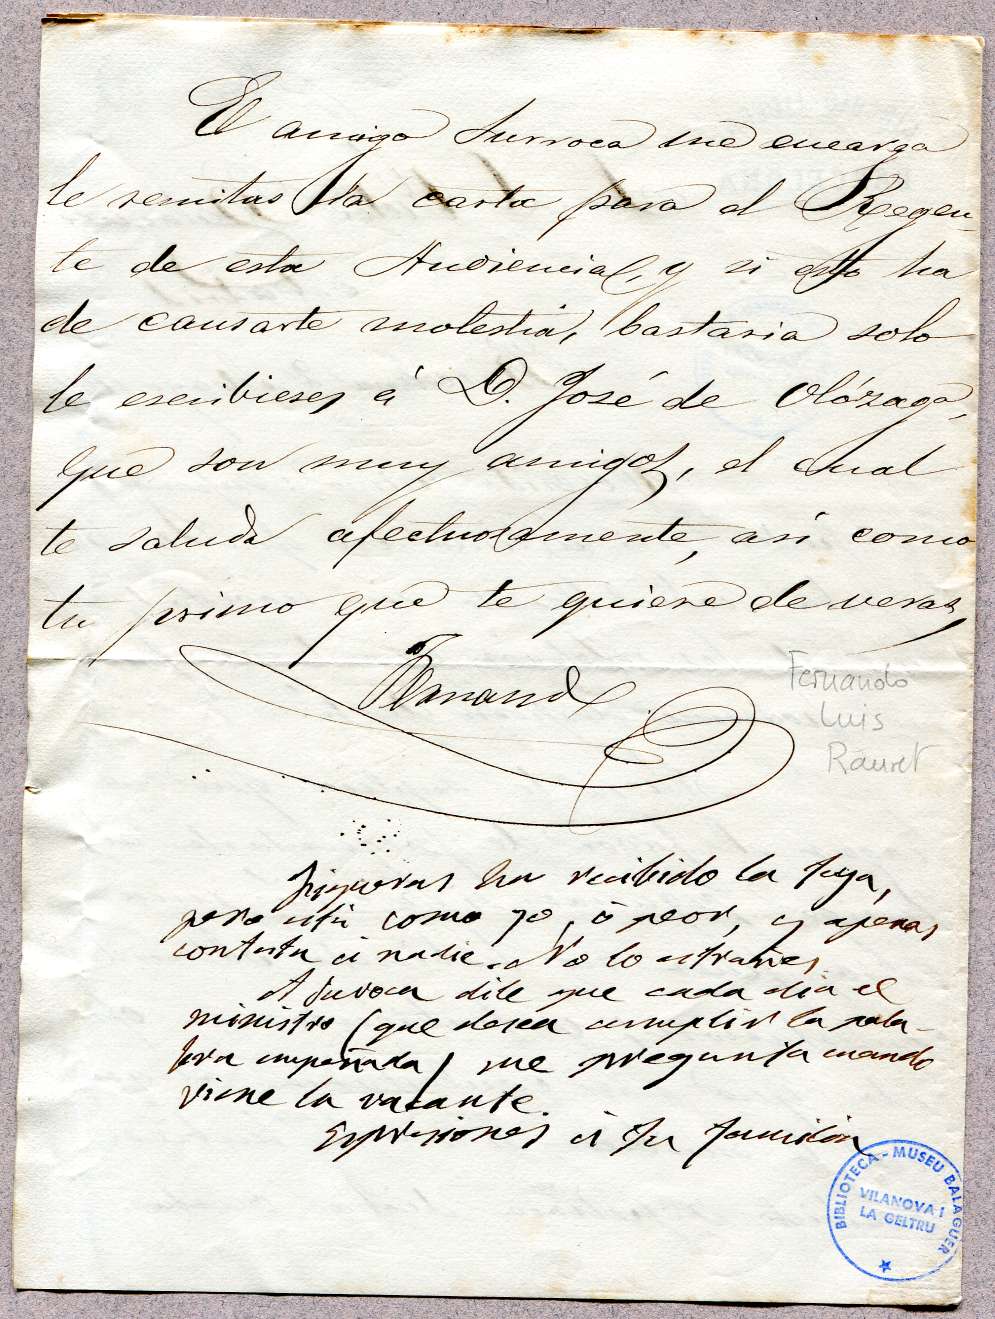 El amigo Surroca me encarga
le remitas la carta para el Regen-
te de esta Audiencia, y si esto ha
de causarte molestia, bastaria solo
le escribieses á D. José de Olózaga,
que son muy amigos, el cual
te saluda afectuosamente, así como
tu primo que te quiere de veras,
Fernando
Fernando
Luis
Rauret
Figueras ha recibido la tuya,
pero está como yo, ó peor, y apenas
contesta á nadie. No lo estrañes
A Suroca dile que cada dia el
ministro (que desea cumplir la pala-
bra empeñada) me pregunta cuando
viene la vacante.
Espresiones á tu familia
BIBLIOTECA - MUSEU BALAGUER
VILANOVA I
LA GELTRU